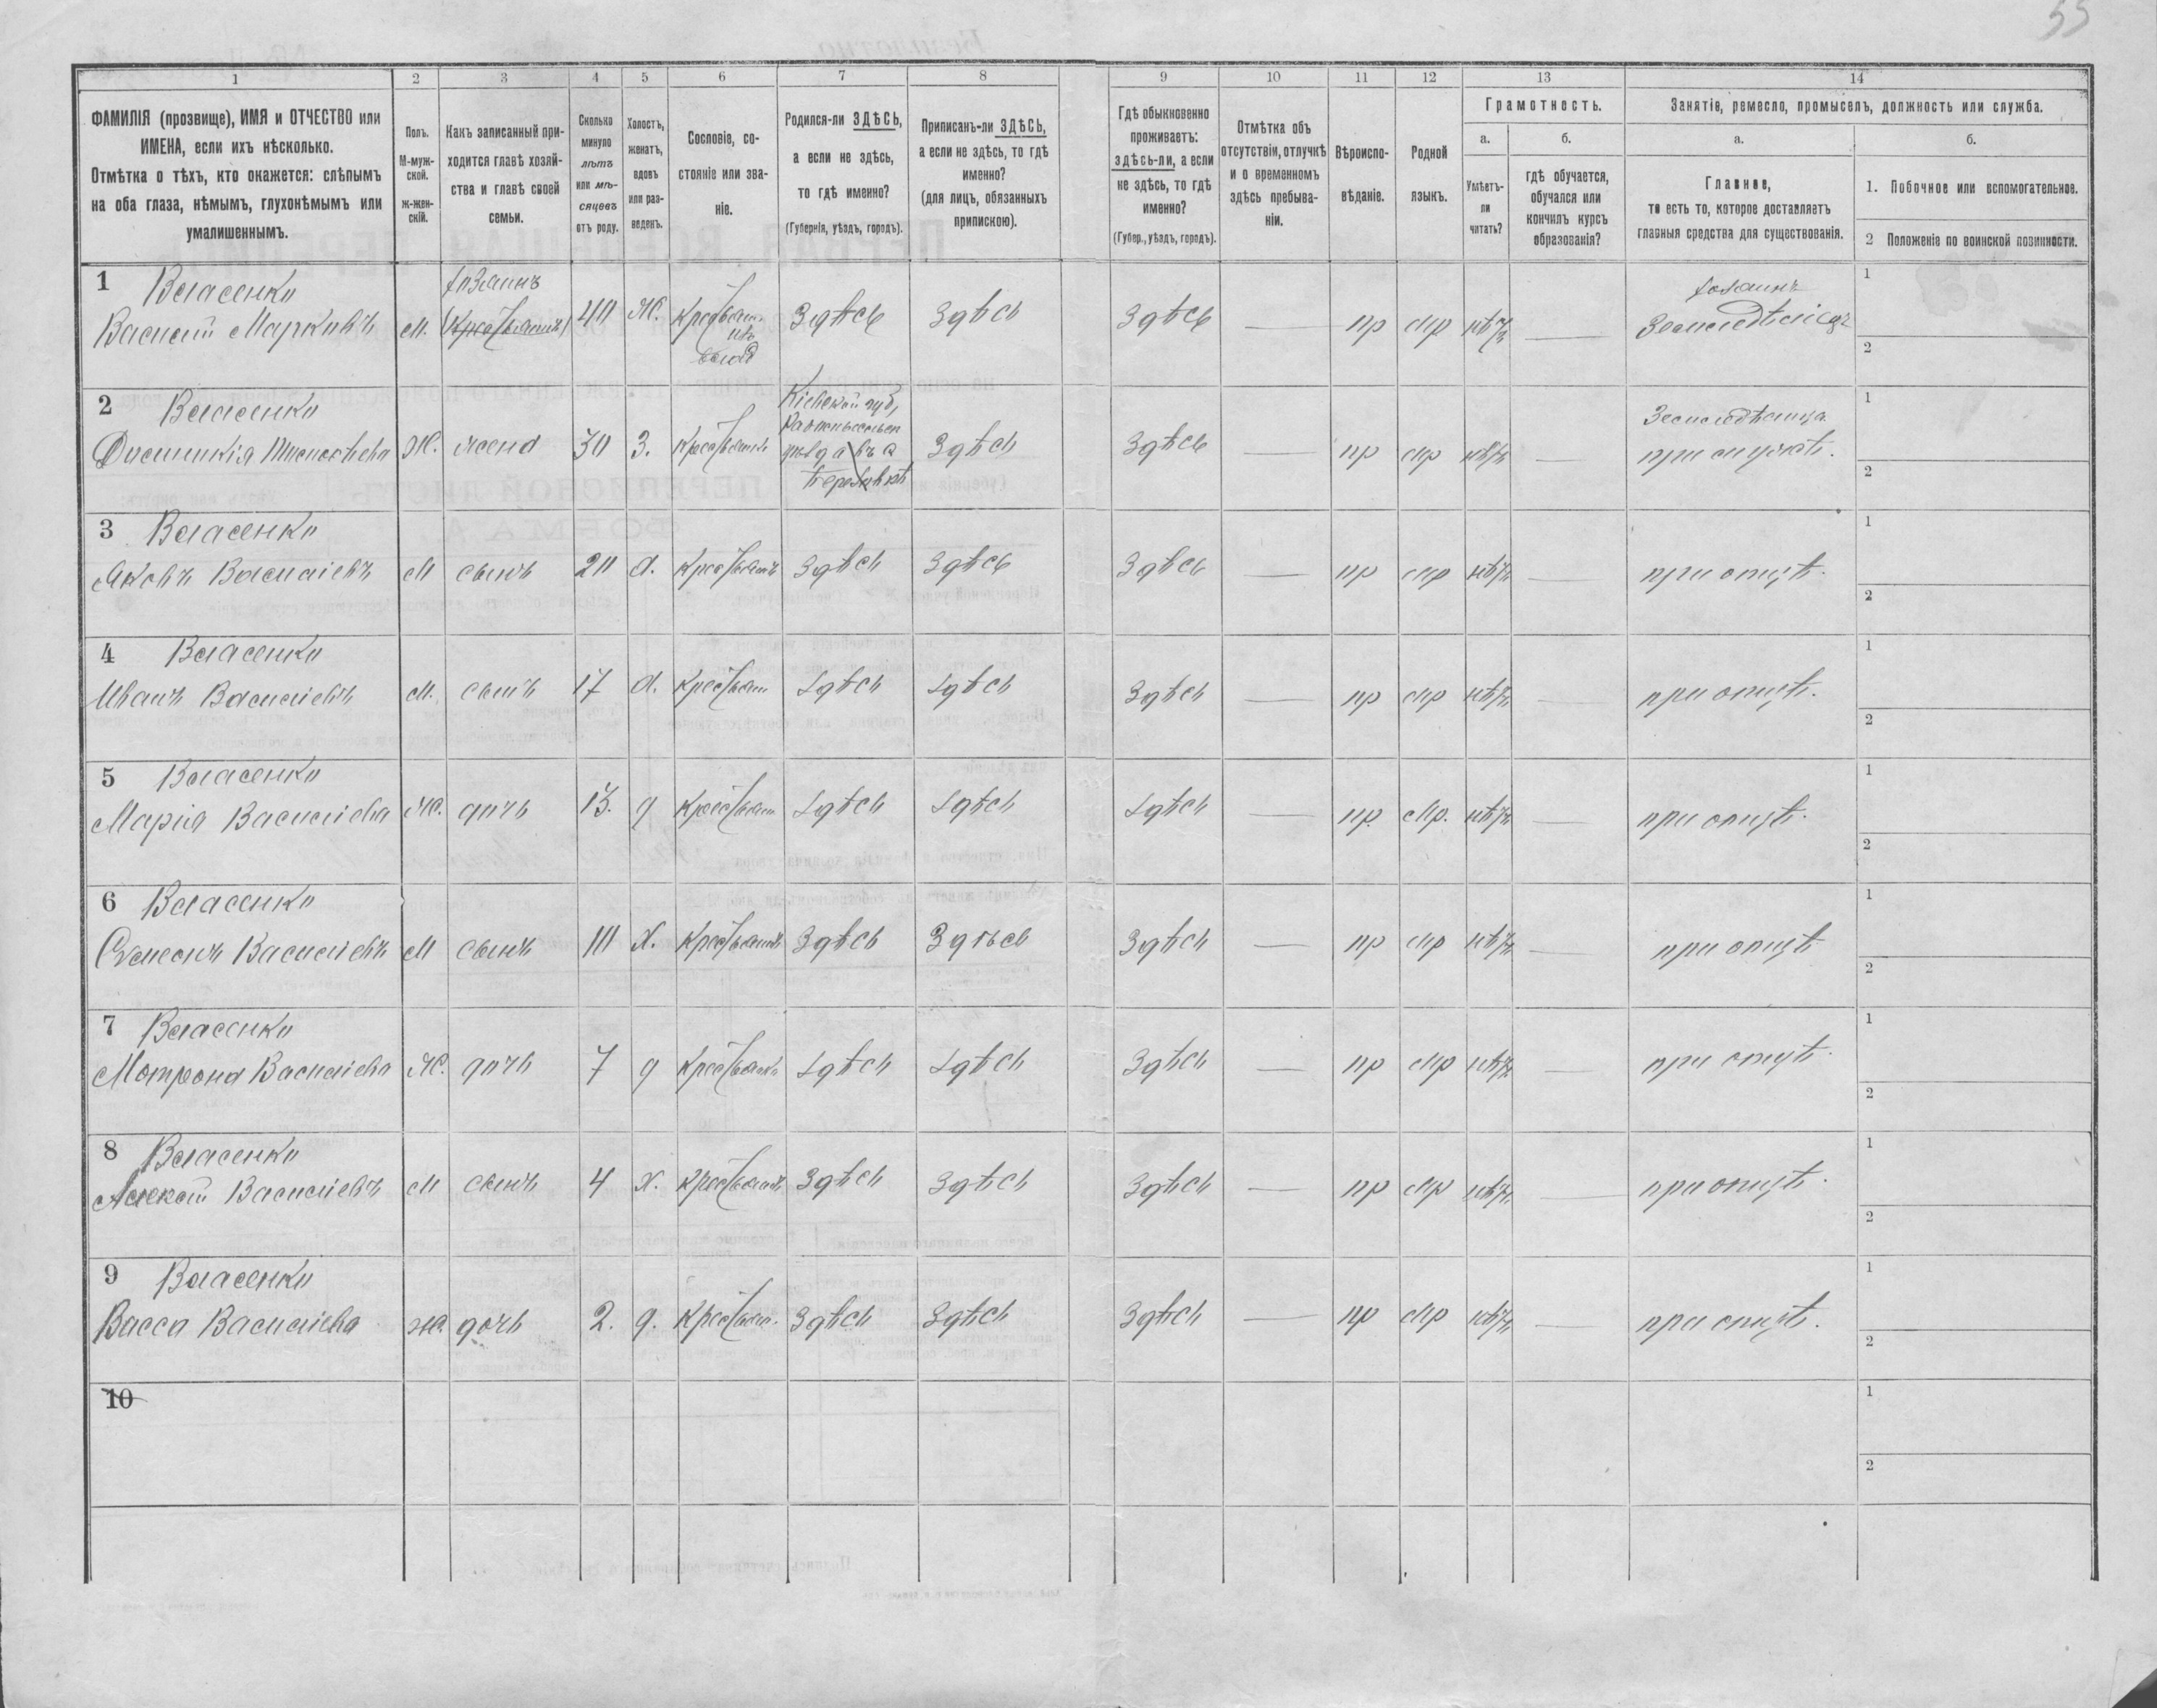 55
1 2 3 4 5 6 7 8 9 10 11 12 13 14
ФАМИЛІЯ (прозвище), ИМЯ и ОТЧЕСТВО или
ИМЕНА, если ихъ нѣсколько.
Отмѣтка о тѣхъ, кто окажется: слѣпымъ
на оба глаза, нѣмымъ, глухонѣмымъ или
умалишеннымъ.
Полъ.
М-муж-
ской.
Ж-жен-
скій.
Какъ записанный при-
ходится главѣ хозяй-
ства и главѣ своей
семьи.
Сколько
минуло
лѣтъ
или мѣ-
сяцевъ
отъ роду.
Холостъ,
женатъ,
вдовъ
или раз-
веденъ.
Сословіе, со-
стояніе или зва-
ніе.
Родился-ли ЗДѢСЬ,
а если не здѣсь,
то гдѣ именно?
(Губернія, уѣздъ, городъ).
Приписанъ-ли ЗДѢСЬ,
а если не здѣсь, то гдѣ
именно?
(для лицъ, обязанныхъ
припискою).
Гдѣ обыкновенно
проживаетъ:
здѣсь-ли, а если
не здѣсь, то гдѣ
именно?
(Губер., уѣздъ, городъ).
Отмѣтка объ
отсутствіи, отлучкѣ
и о временномъ
здѣсь пребыва-
ніи.
Вѣроиспо-
вѣданіе.
Родной
языкъ.
Грамотность.
а.
Умѣетъ-
ли
читать?
б.
гдѣ обучается,
обучался или
кончилъ курсъ
образованія?
Занятіе, ремесло, промыселъ, должность или служба.
а.
Главное,
то есть то, которое доставляетъ
главныя средства для существованія.
б.
1. Побочное или вспомогательное.
2 Положеніе по воинской повинности.
1 Власенко хозяинъ хозаинъ 1
Василій Марковъ М. 40 Ж. Крестьян. Здѣсь Здѣсь Здѣсь — пр мр нѣтъ — Земледѣлецъ
2
2 Власенко Кіевской губ, 1
Ж. жена 30 З. Крестьянк Здѣсь Здѣсь — пр мр нѣтъ — при мужѣ.
2
3 Власенко 1
Яковъ Василіевъ М сынъ 20 Х. Крестьянъ Здѣсь Здѣсь Здѣсь — пр мр нѣтъ — при отцѣ.
2
4 Власенко 1
Иванъ Василіевъ М. сынъ 17 Х. Крестьян Здѣсь Здѣсь Здѣсь — пр мр нѣтъ — при отцѣ.
2
5 Власенко 1
Марія Василіева Ж. дочь 13. д Крестьян Здѣсь Здѣсь Здѣсь — пр. мр. нѣтъ — при отцѣ.
2
6 Власенко 1
Семенъ Василіевъ М сынъ 10 Х. Крестьянъ Здѣсь Здѣсь Здѣсь — пр мр нѣтъ — при отцѣ
2
7 Власенко 1
Мотрона Василіева Ж. дочь 7 д Крестьянк Здѣсь Здѣсь Здѣсь — пр мр нѣтъ — при отцѣ.
2
8 Власенко 1
Алексѣй Василіевъ М сынъ 4 Х. Крестьянъ Здѣсь Здѣсь Здѣсь — пр мр нѣтъ — при отцѣ.
2
9 Власенко 1
Васса Василіева Ж. дочь 2. д. Крестьян. Здѣсь Здѣсь Здѣсь — пр мр нѣтъ — при отцѣ.
2
10 1
2